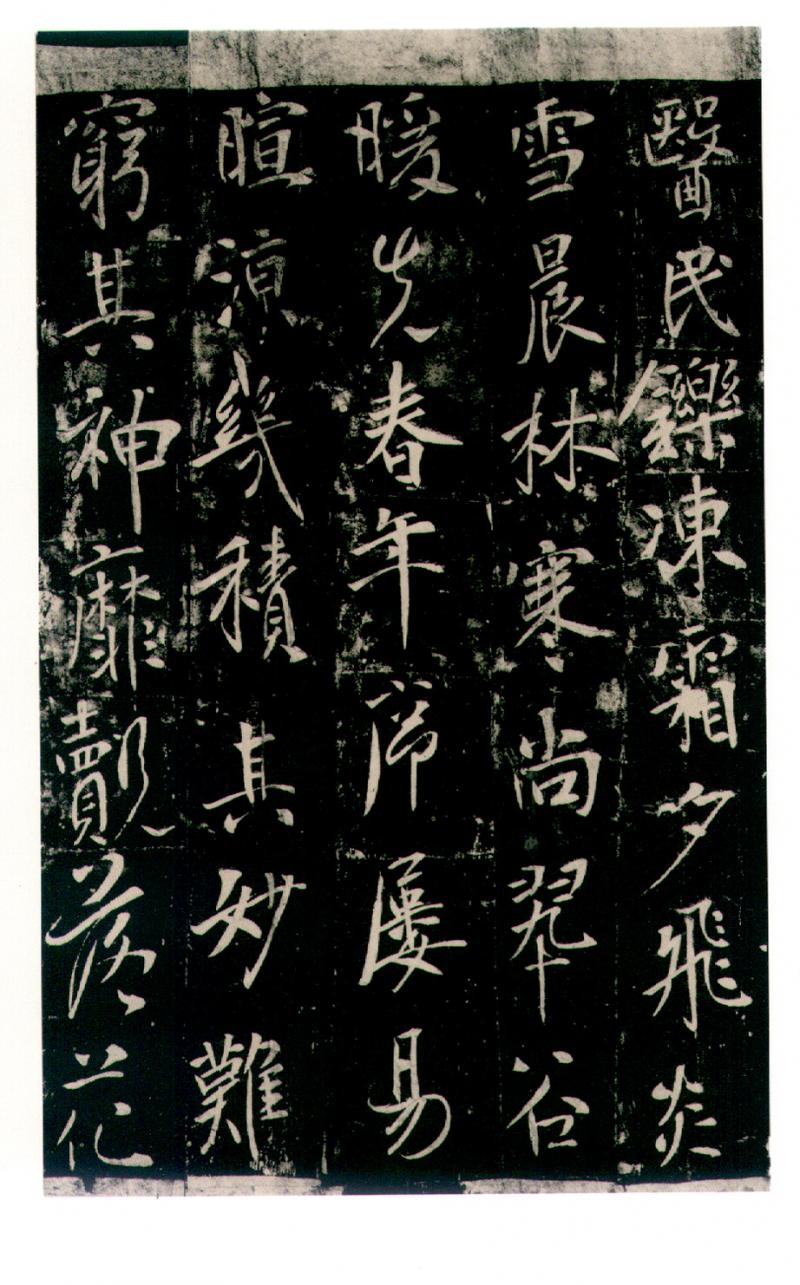 醫民鑠凍霜夕飛炎
雪晨林寒尚翠谷
暖先春年歲屢易
暄涼幾積其妙難
窮其神靡覿落花